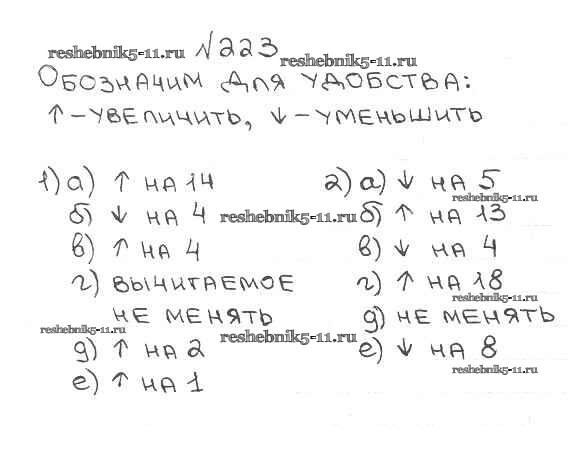 reshebnik5-11.ru №223 reshebnik5-11.ru
Обозначим для удобства:
↑ – увеличить, ↓ – уменьшить
1) а) ↑ на 14
б) ↓ на 4 reshebnik5-11.ru
в) ↑ на 4
г) вычитаемое
не менять
reshebnik5-11.ru
д) ↑ на 2 reshebnik5-11.ru
е) ↑ на 1
2) а) ↓ на 5
reshebnik5-11.ru
б) ↑ на 13
в) ↓ на 4
г) ↑ на 18
reshebnik5-11.ru
д) не менять
е) ↓ на 8
reshebnik5-11.ru